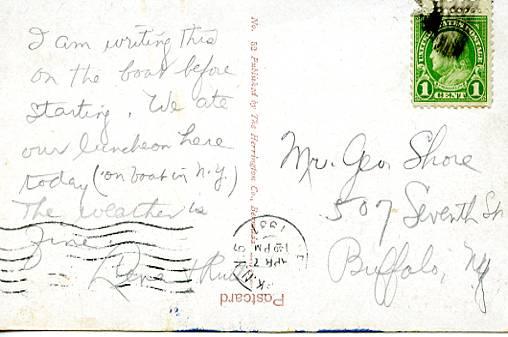 I am writing this
on the boat before
starting. We ate
our luncheon here
today (on boat in N.Y.)
The weather is
fine.
No. 52 Published by The Herrington Co.,
Postcard
UNITED STATES POSTAGE
1 CENT 1
APR 7
PM
Mr. Geo. Shore
507 Seventh St
Buffalo, Ny